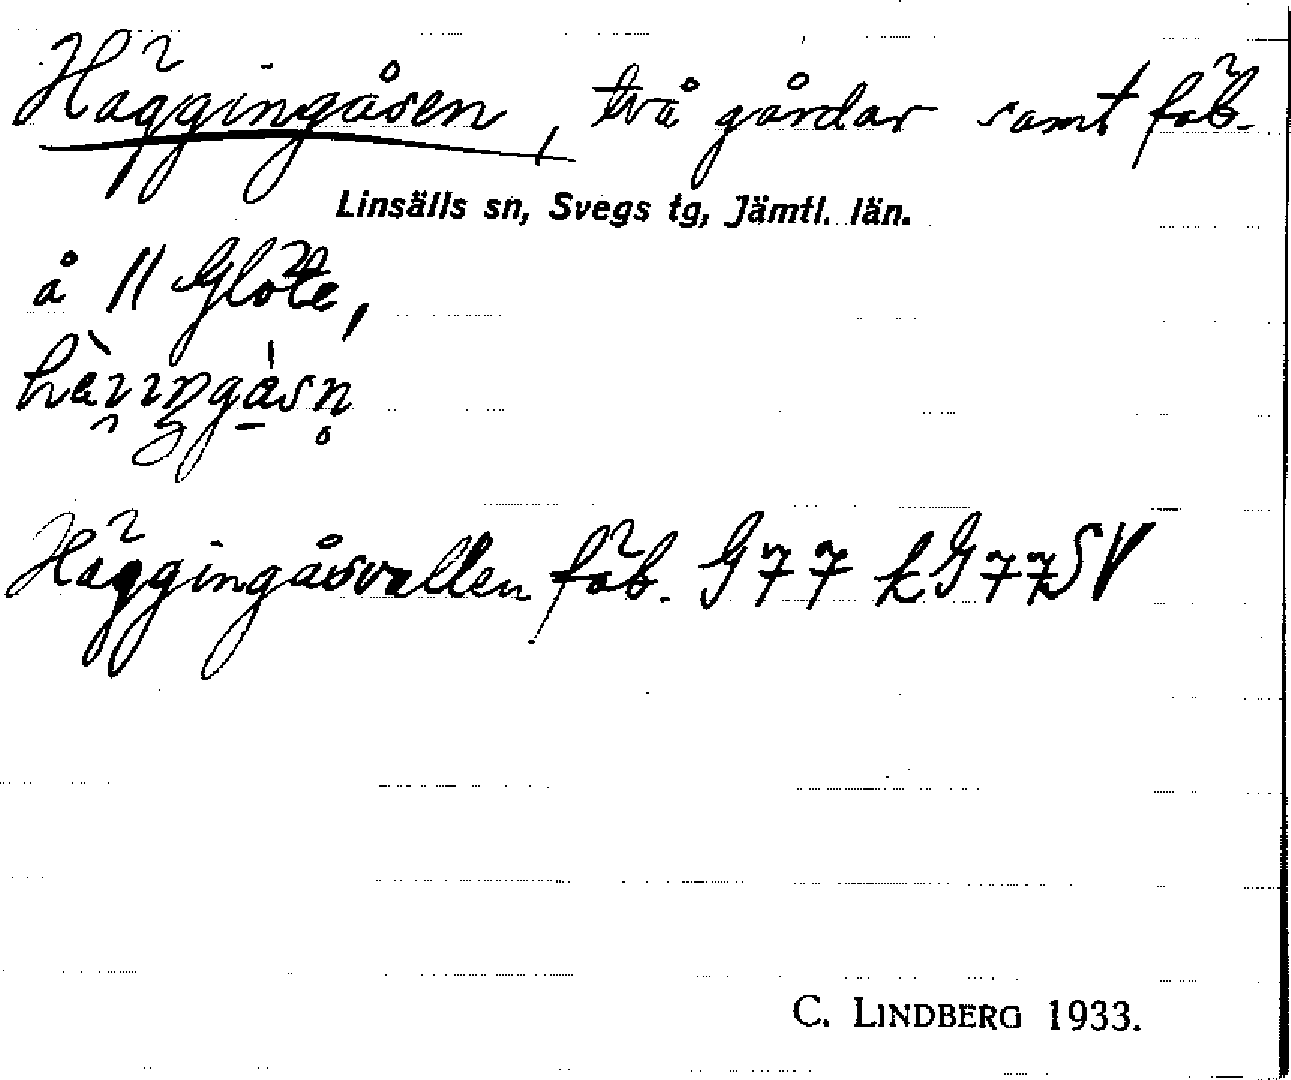 Häggingåsen, två gårdar samt fäb.
Linsälls sn, Svegs tg, Jämtl. län.
å 11 Glöte,
Häggingåsvallen fäb. G77 LG77SV
C. LINDBERG 1933.